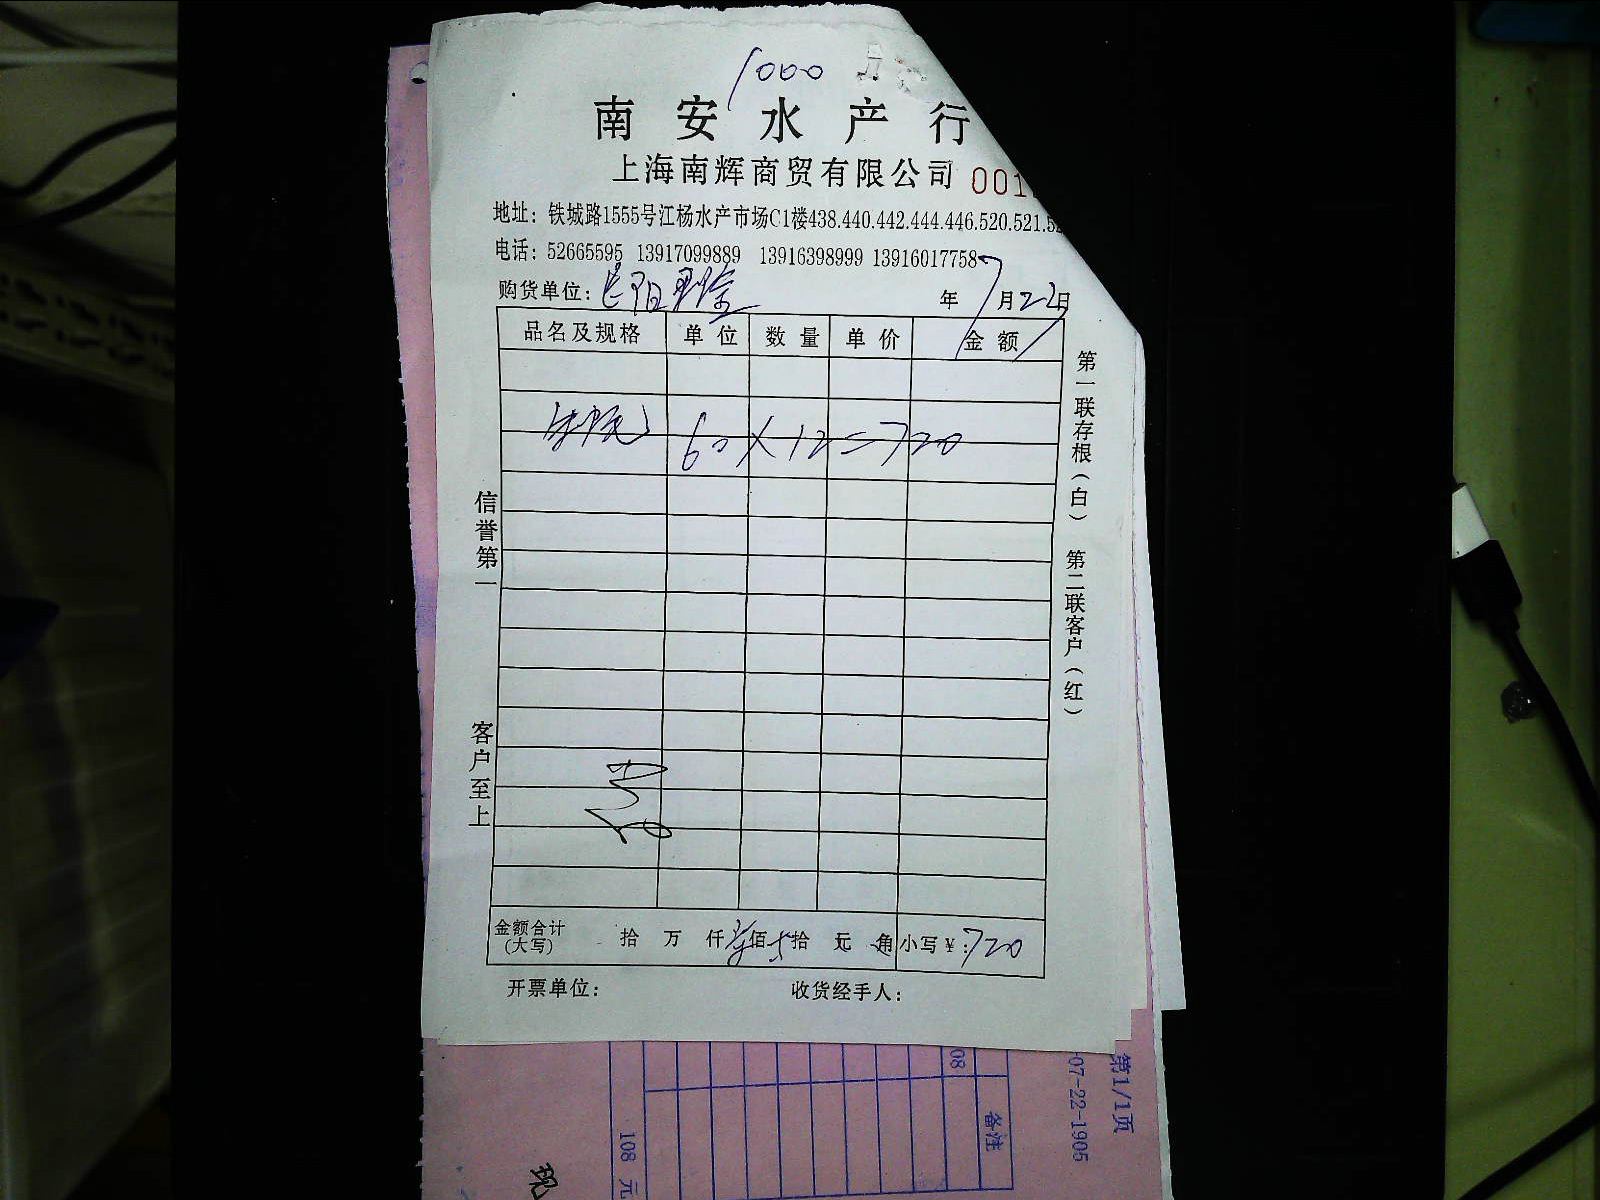 1000
南安水产行
上海南辉商贸有限公司 001
地址：铁城路1555号江杨水产市场C1楼438.440.442.444.446.520.521.5
电话：52665595 13917099889 13916398999 13916017758
购货单位： 年7月22日
品名及规格 单位 数量 单价 金额
60×12=720
信誉第一
客户至上
第一联存根（白） 第二联客户（红）
金额合计（大写） 拾 万 仟 佰 拾 元 角 小写¥：720
开票单位： 收货经手人：
08
备注
108 元
现
-07-22-1905
第1/1页